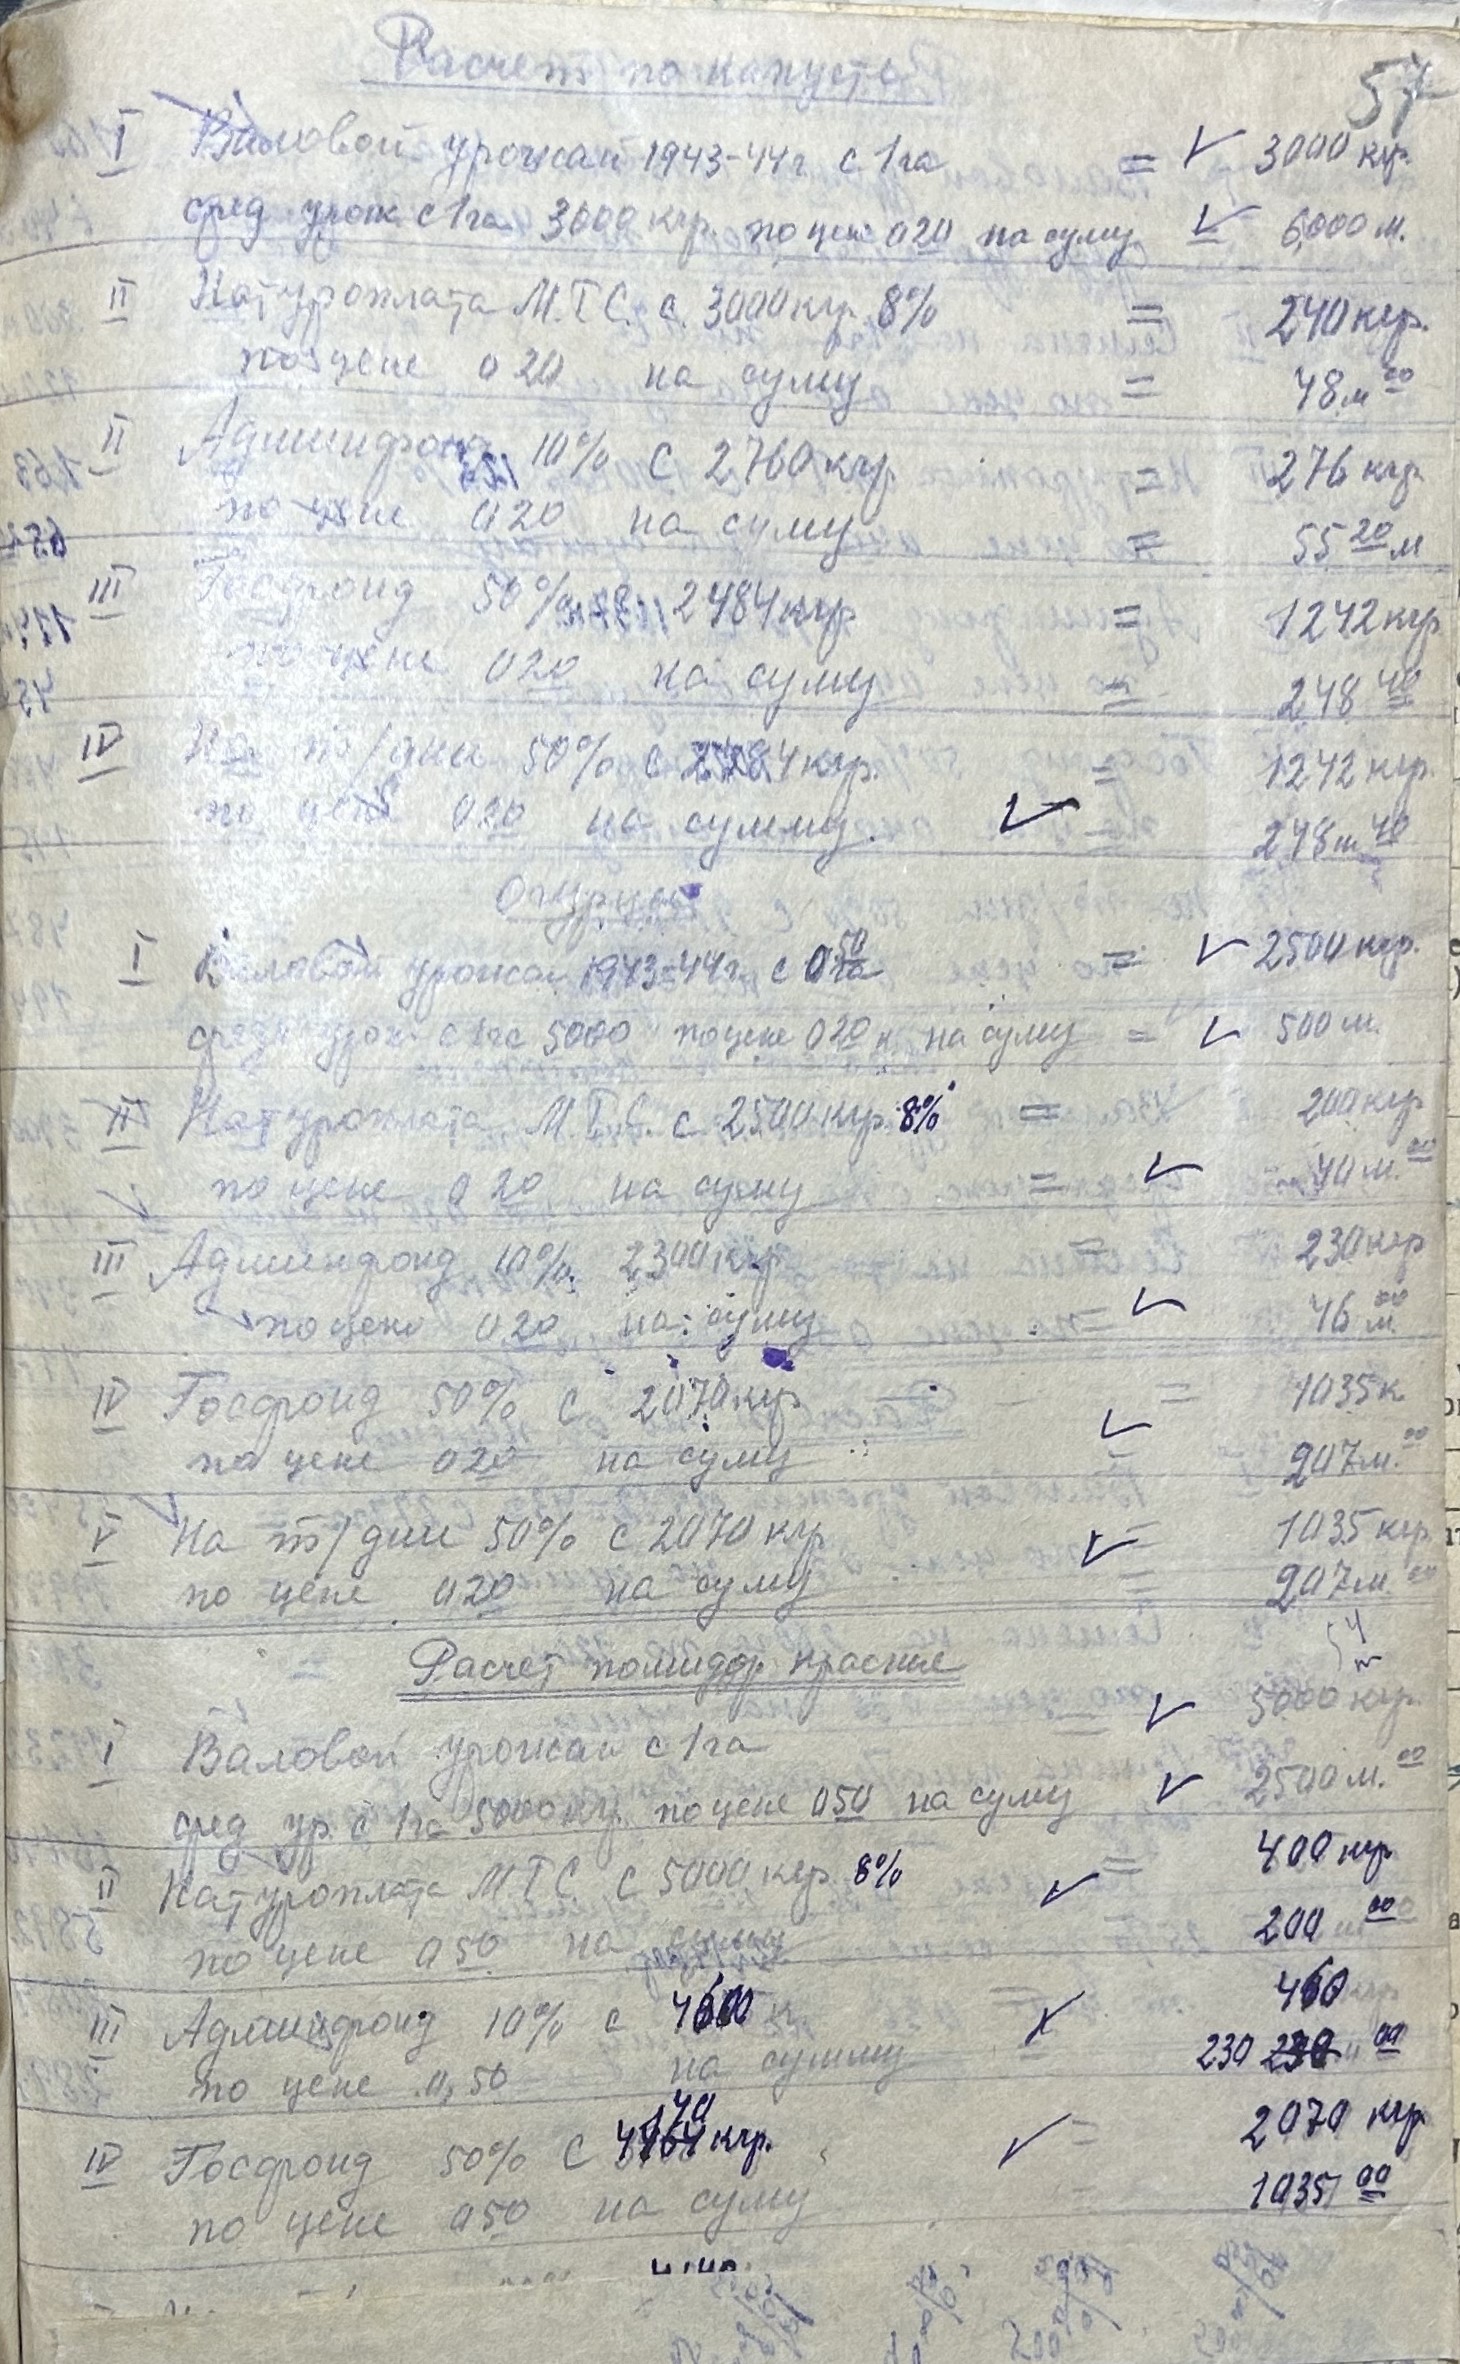 57
Расчет по капусте
I Валовой урожай 1943-44г с 1га = 3000 кгр.
сред урож с 1га 3000 кгр. по цене 0 20 на сумму = 6000 м.
II Натуроплата М.Т.С. с 3000 кгр. 8% = 240 кгр.
по цене 0 20 на сумму = 48 м 00
II Админфонд 10% с 2760 кгр. = 276 кгр.
по цене 0 20 на сумму = 55 20 м
III Госфонд 50% 2484 кгр = 1242 кгр
по цене 0 20 на сумму = 248 40
IV На т/дни 50% с 2484 кгр. = 1242 кгр.
по цене 0 20 на сумму. 248 м 40
Огурцы
I Валовой урожай 1943-44г. с 0 50 га = 2500 кгр.
средн урож. с 1га 5000 по цене 0 20 к на сумму = 500 м.
II Натуроплата М.Т.С. с 2500 кгр. 8% = 200 кгр
по цене 0 20 на сумму = 40 м. 00
III Админфонд 10% 2300 кгр = 230 кгр
по цене 0 20 на сумму 46 м. 00
IV Госфонд 50% с 2070 кгр = 1035 к
по цене 0 20 на сумму = 207 м. 00
V На т/дни 50% с 2070 кгр = 1035 кгр.
по цене 0 20 на сумму = 207 м. 00
Расчет помидор красные
I Валовой урожай с 1га = 5000 кгр.
сред ур. с 1га 5000 кгр. по цене 0 50 на сумму 2500 м. 00
II Натуроплата МТС с 5000 кгр. 8% = 400 кгр
по цене 0 50 на сумму 200 00
III Админфонд 10% с 4600 к = 460
по цене 0,50 на сумму = 230 00
IV Госфонд 50% с 4140 кгр. = 2070 кгр
по цене 0 50 на сумму = 1035 00